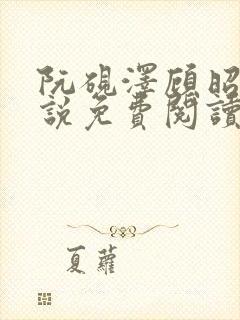 阮硯澤顧昭
說免費閱讀
夏蘿